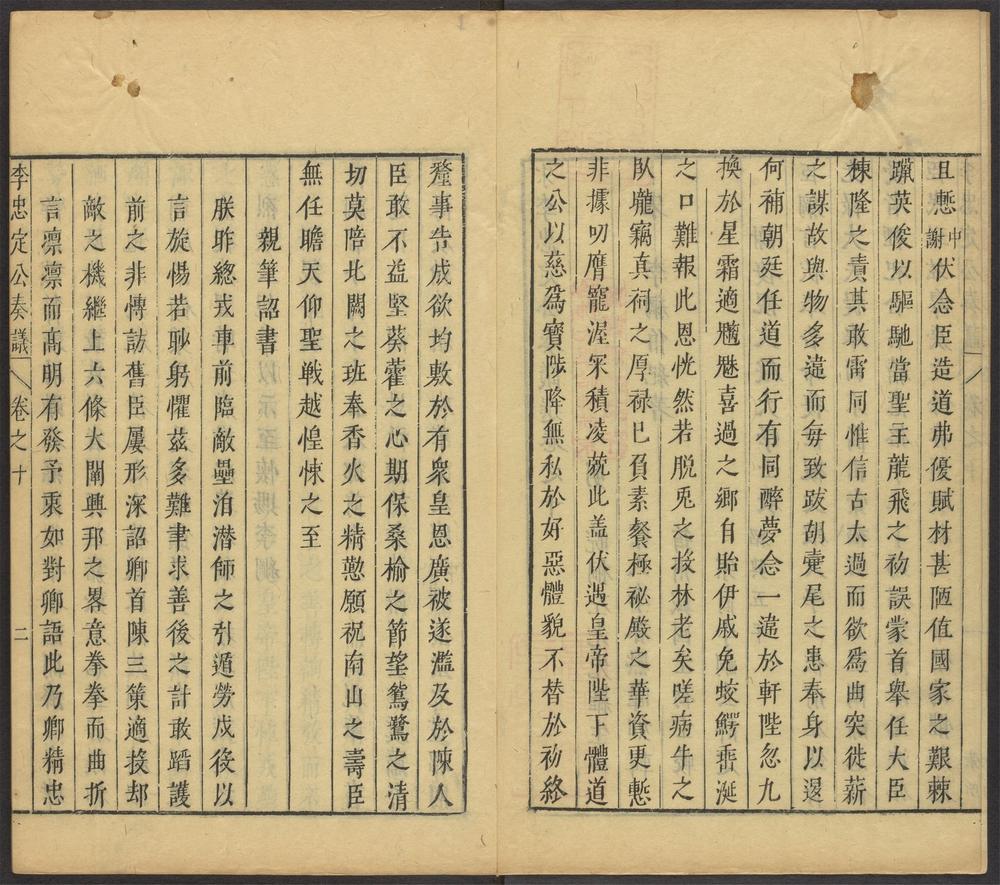 且慙中謝伏念臣造道弗優賦材甚陋值國家之艱棘
躐英俊以驅馳當聖主龍飛之初誤蒙首舉任大臣
棟隆之責其敢雷同惟信古太過而欲爲曲突徙薪
之謀故與物多違而每致跋胡疐尾之患奉身以退
何補朝廷任道而行有同醉夢念一違於軒陛忽九
換於星霜適魑魅喜過之鄉自貽伊戚免蛟鰐垂涎
之口難報此恩恍然若脫兎之投林老矣嗟病牛之
臥壠竊真祠之厚禄已負素餐極祕殿之華資更慙
非據叨膺寵渥冞積凌兢此盖伏遇皇帝陛下體道
之公以慈爲寶陟降無私於好惡體貌不替於初終
釐事告成欲均敷於有衆皇恩廣被遂濫及於陳人
臣敢不益堅葵藿之心期保桑榆之節望鴛鷺之清
切莫陪北闕之班奉香火之精懃願祝南山之壽臣
無任瞻天仰聖戰越惶悚之至
親筆詔書
朕昨總戎車前臨敵壘洎潜師之引遁勞戍役以
言旋惕若眇躬懼茲多難聿求善後之計敢蹈護
前之非愽訪舊臣屢形深詔卿首陳三策適投却
敵之機繼上六條大闡興邦之畧意拳拳而曲折
言凛凛而髙明有發予衷如對卿語此乃卿精忠
李忠定公奏議 卷之十 二